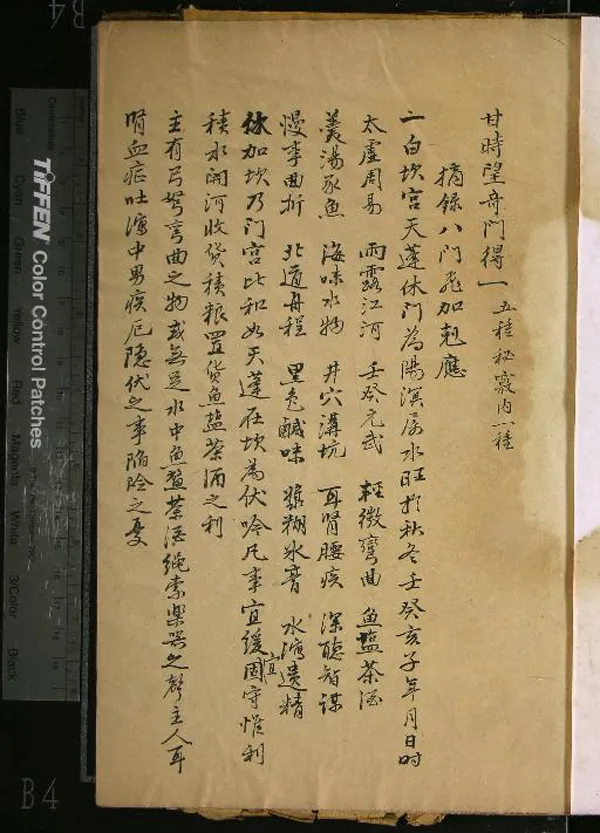 甘時望奇門得一 五種秘竅內一種
摘錄八門飛加剋應
一白坎宮天蓬休門為陽溟屬水旺於秋冬壬癸亥子年月日时
太虛周易 雨露江河 壬癸元武 輕微彎曲 魚盐茶酒
羹湯豕魚 海味水物 井穴溝坑 耳腎腰疾 深聰智謀
慢事曲折 北道舟程 黑色鹹味 糊水膏 水瀉遺精
休加坎乃门宮比和如天蓬在坎為伏吟凡事宜緩宜固守惟利
積水開河收货積粮置货魚盐茶酒之利
主有弓弩弯曲之物或無足水中魚鱉茶酒绳索樂器之聲主人耳
腎血症吐瀉中男疾厄隐伏之事陷险之憂
TIFFEN Color Control Patches
Blue
Cyan
Green
Yellow
Red
Magenta
White
3/Color
Black
B4
B4